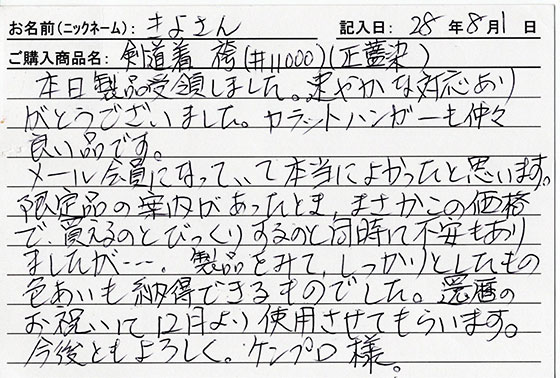 お名前(ニックネーム): きよさん 記入日: 28 年 8 月 1 日
ご購入商品名: 剣道着 袴(#11000)(正藍染)
本日製品受領しました。速やかな対応あり
がとうございました。カラットハンガーも仲々
良い品です。
メール会員になっていて本当によかったと思います。
限定品の案内があったとき、まさかこの価格
で、買えるのとびっくりするのと同時に不安もあり
ましたが…。製品をみて、しっかりとしたもの
色あいも納得できるものでした。還暦の
お祝いにて12月より使用させてもらいます。
今後ともよろしく。ケンプロ様。